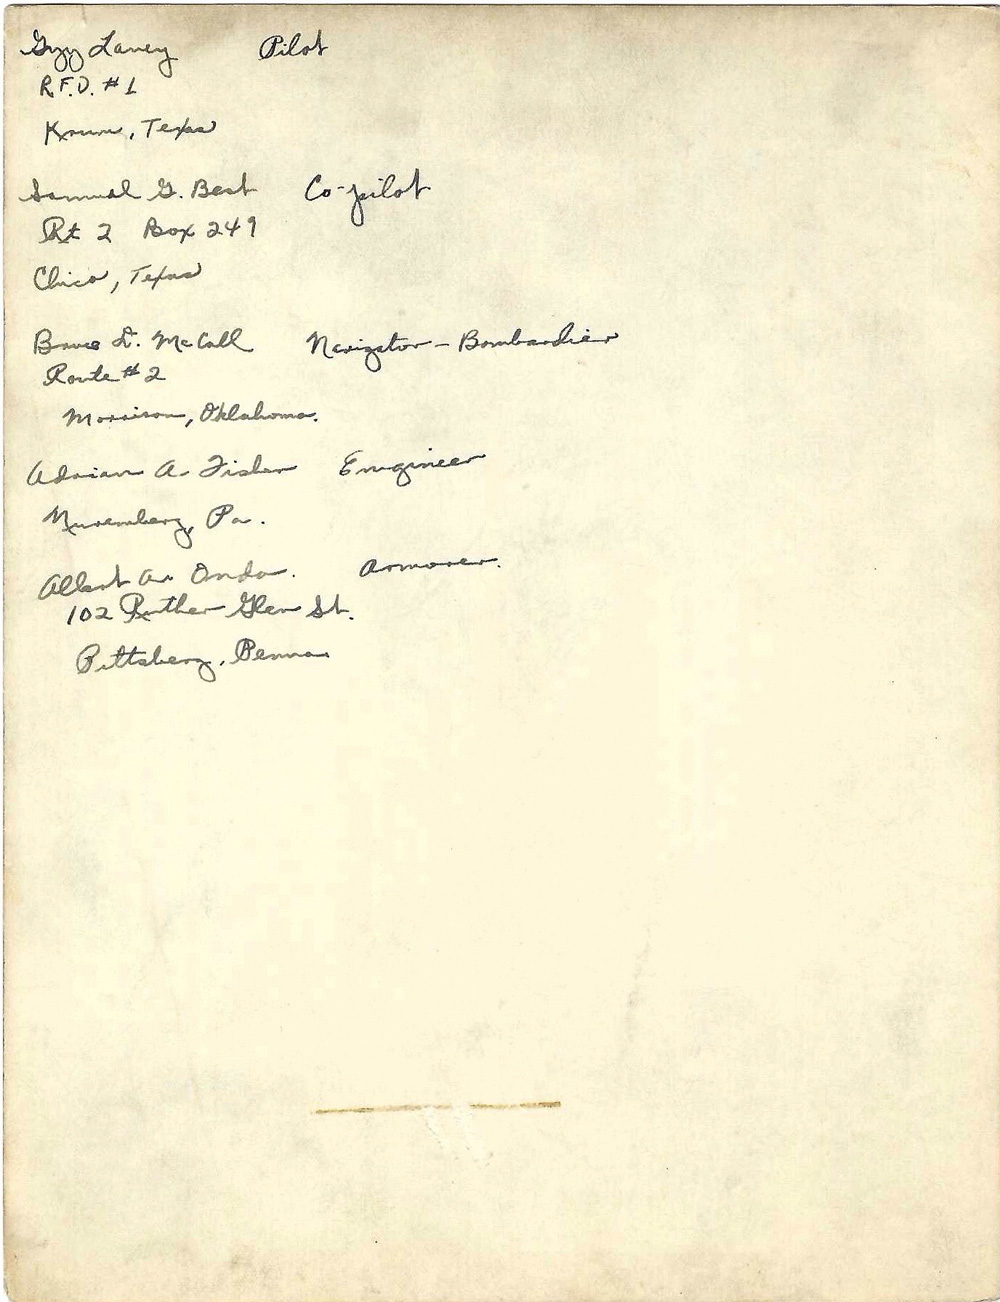 Guy Laney Pilot
R.F.D. #1
Krum, Texas
Samual G. Best Co-pilot
Rt 2 Box 249
Chico, Texas
Bruce D. McCall Navigator - Bombardier
Route #2
Morrison, Oklahoma.
Adrian A. Fisher Engineer
Nuremberg, Pa.
Albert A. Ondo. Armorer.
102 Ruther Glen St.
Pittsberg, Penna